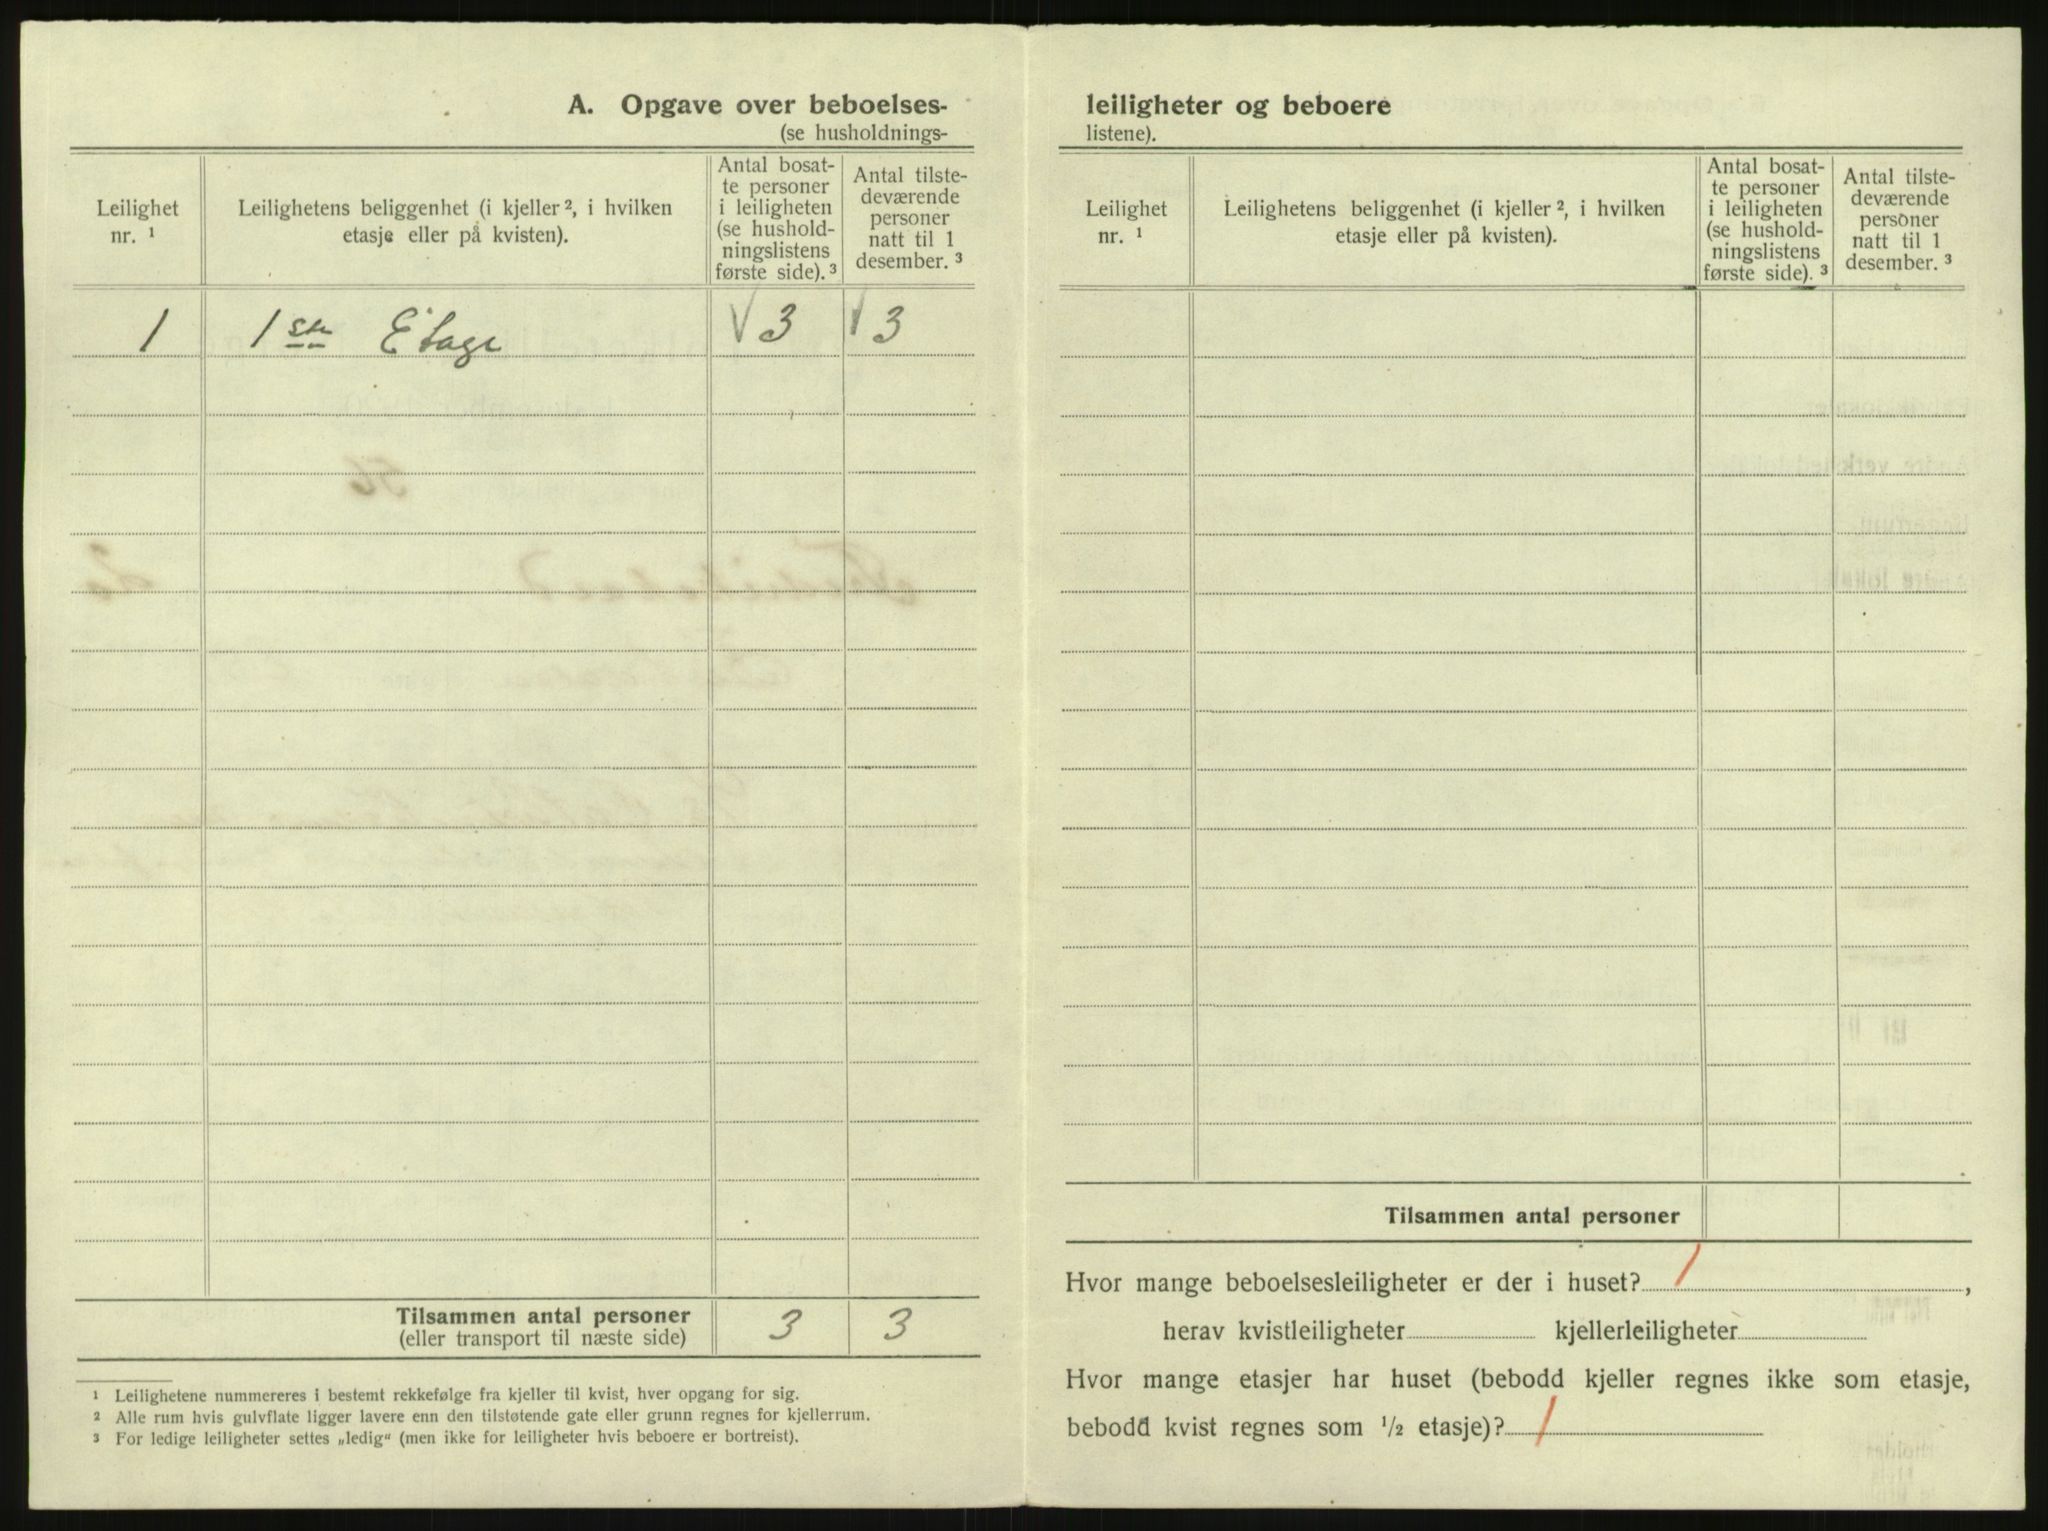 A. Opgave over beboelses-
(se husholdnings-
Leilighet nr. 1
Leilighetens beliggenhet (i kjeller 2, i hvilken etasje eller på kvisten).
Antal bosat-
te personer
i leiligheten
(se hushold-
ningslistens
første side). 3
Antal tilste-
deværende
personer
natt til 1
desember. 3
1 1ste Etage 3 3
Tilsammen antal personer 3 3
(eller transport til næste side)
1 Leilighetene nummereres i bestemt rekkefølge fra kjeller til kvist, hver opgang for sig.
2 Alle rum hvis gulvflate ligger lavere enn den tilstøtende gate eller grunn regnes for kjellerrum.
3 For ledige leiligheter settes „ledig“ (men ikke for leiligheter hvis beboere er bortreist).
leiligheter og beboere
listene).
Leilighet nr. 1
Leilighetens beliggenhet (i kjeller 2, i hvilken etasje eller på kvisten).
Antal bosat-
te personer
i leiligheten
(se hushold-
ningslistens
første side). 3
Antal tilste-
deværende
personer
natt til 1
desember. 3
Tilsammen antal personer
Hvor mange beboelsesleiligheter er der i huset? 1 ,
herav kvistleiligheter kjellerleiligheter
Hvor mange etasjer har huset (bebodd kjeller regnes ikke som etasje,
bebodd kvist regnes som 1/2 etasje)? 1